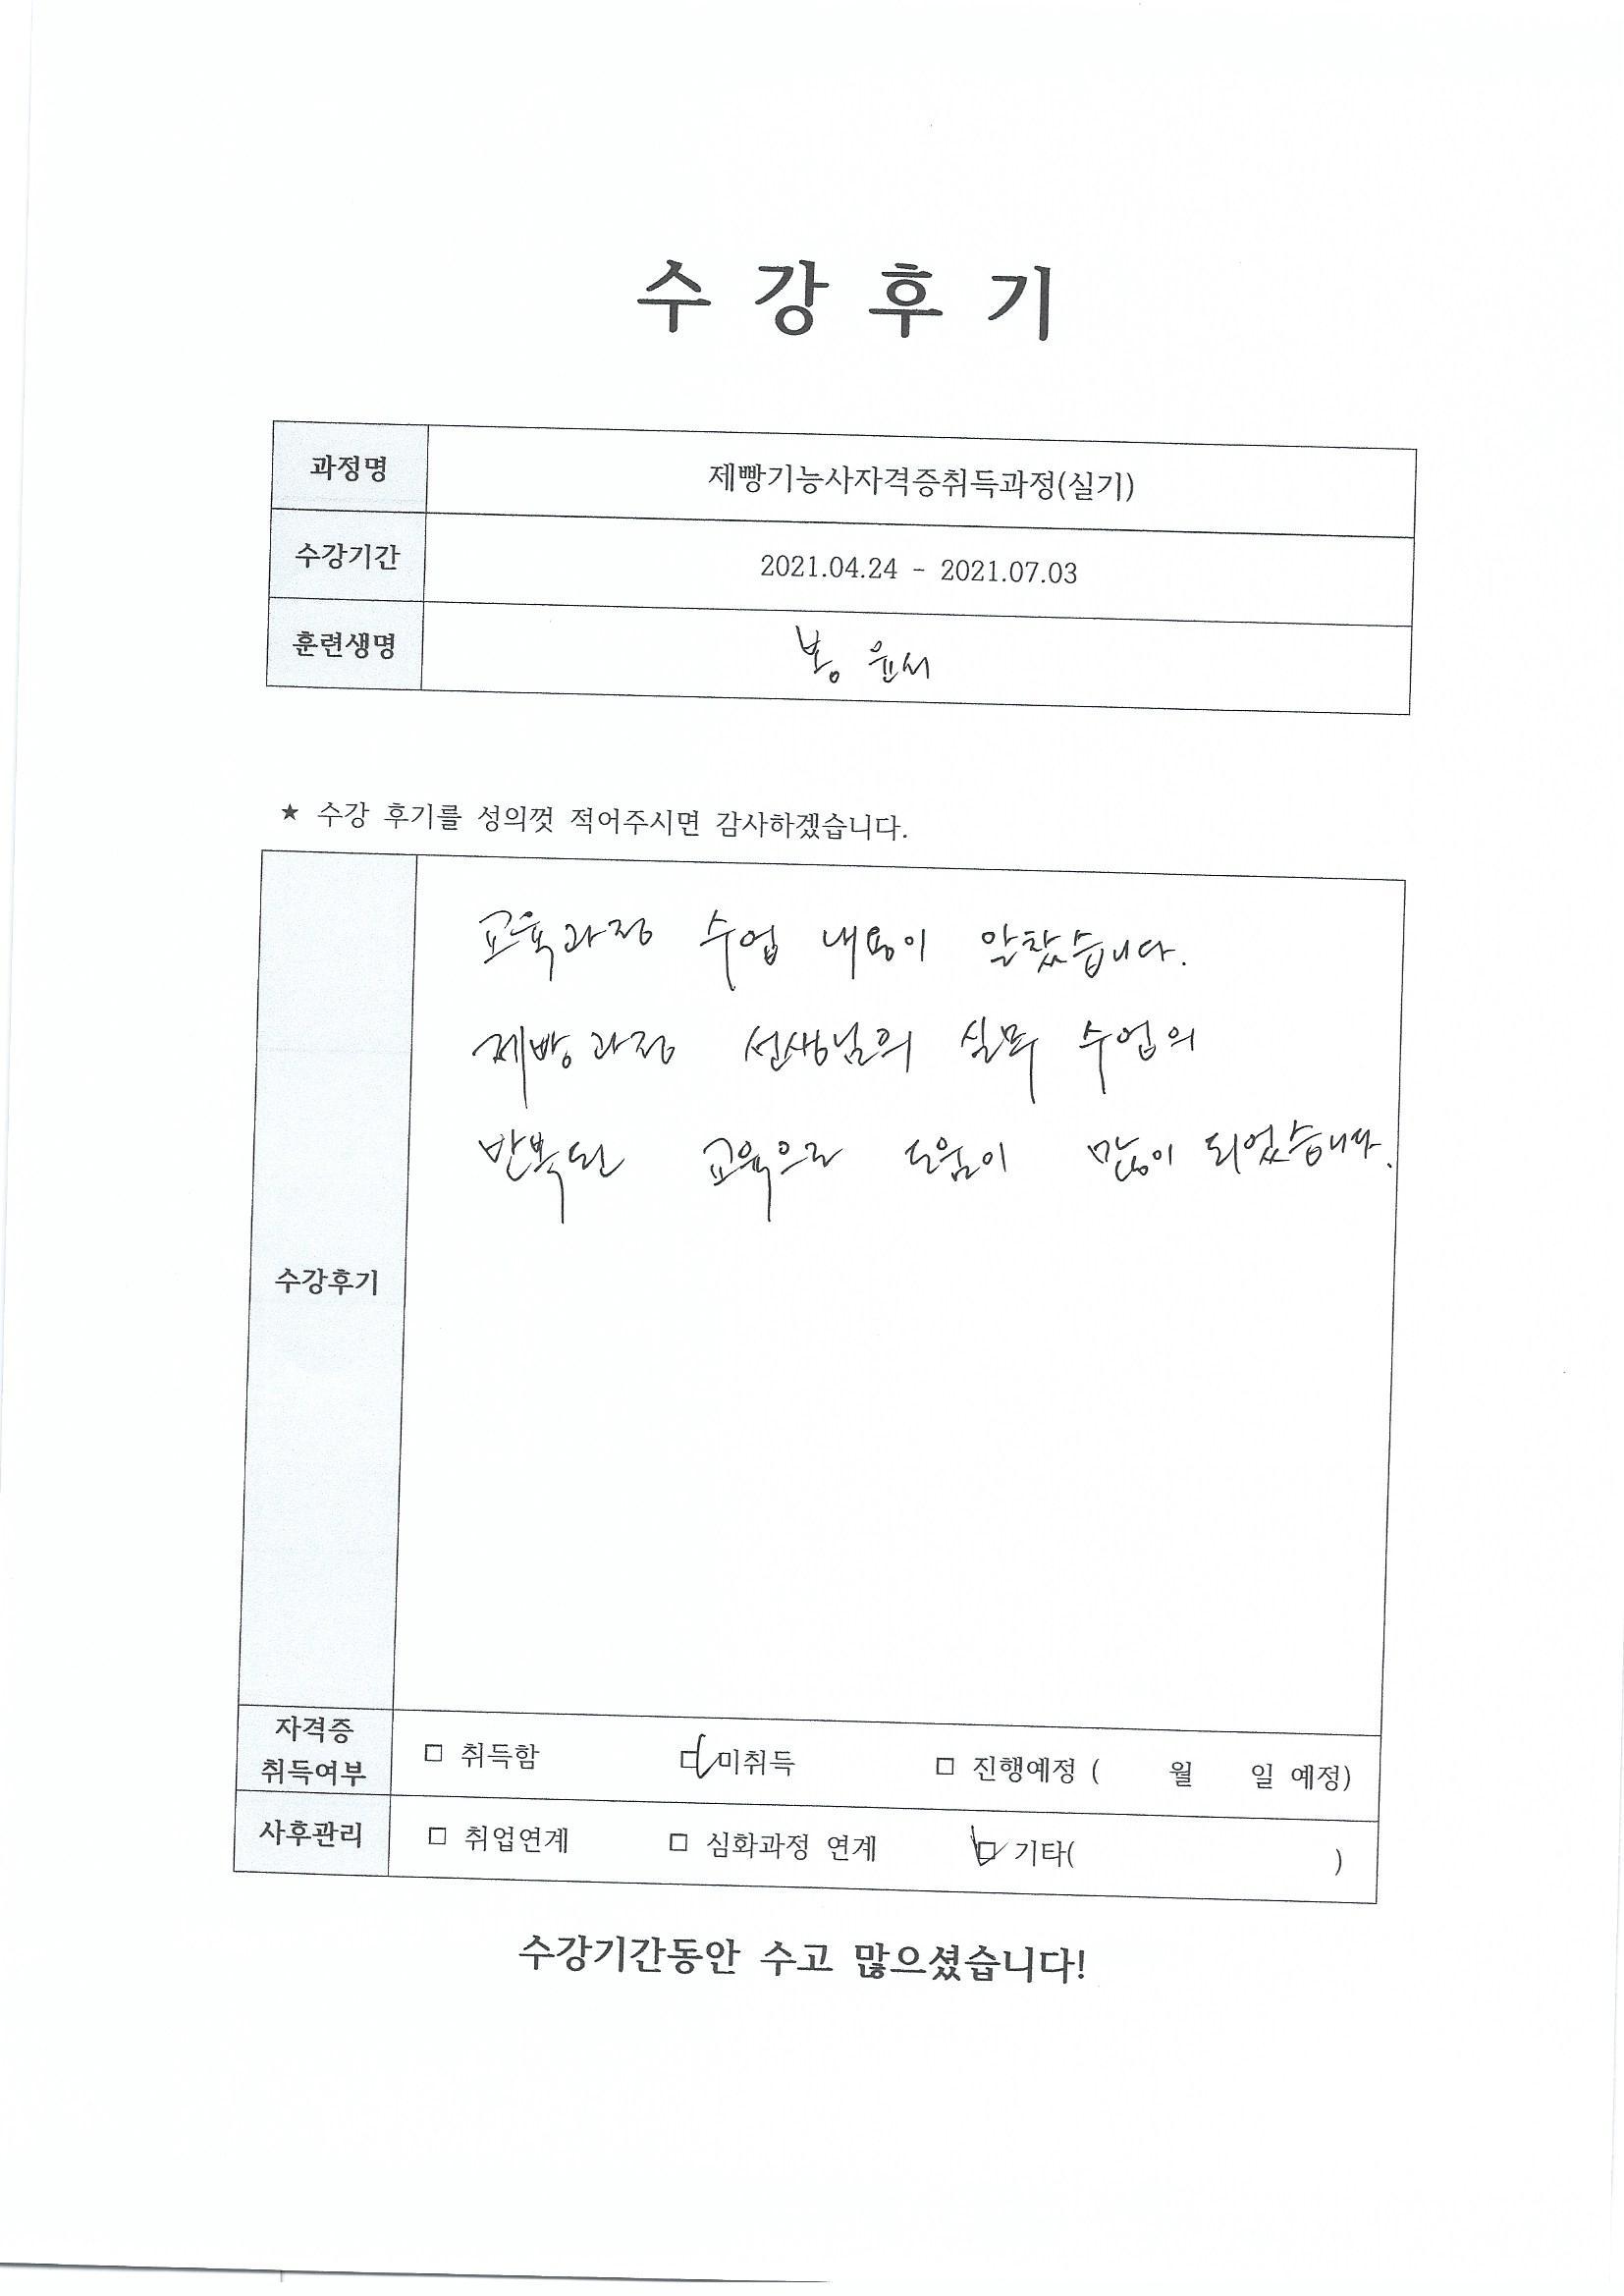 수 강 후 기
과정명 제빵기능사자격증취득과정(실기)
수강기간 2021.04.24 - 2021.07.03
훈련생명 봉 윤서
★ 수강 후기를 성의껏 적어주시면 감사하겠습니다.
교육과정 수업 내용이 알찼습니다.
제빵과정 선생님의 실무 수업의
반복된 교육으로 도움이 많이 되었습니다.
수강후기
자격증
취득여부 □ 취득함 ☑ 미취득 □ 진행예정 ( 월 일 예정)
사후관리 □ 취업연계 □ 심화과정 연계 ☑ 기타( )
수강기간동안 수고 많으셨습니다!